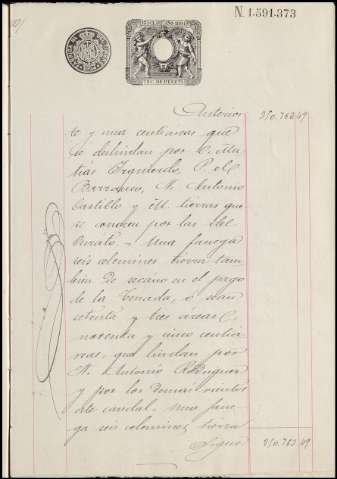 N. 1.591.373
Anterior
350.763,49
te y unas centiareas que
se deslindan por D. Ma-
tias Izquierdo, P. el
Barranco, N. Antonio
Castillo y M. tierras que
se conocen por las del
Curato. - Una fanega
seis celemines tierra tam-
bien de secano en el pago
de la Tornada, ó sean
setenta y tres areas
noventa y cinco centia-
reas, que lindan por
N. Antonio Rodriguez
y por los demas vientos
este caudal. Una fane-
ga seis celemines, tierra
Sigue
350.763,49